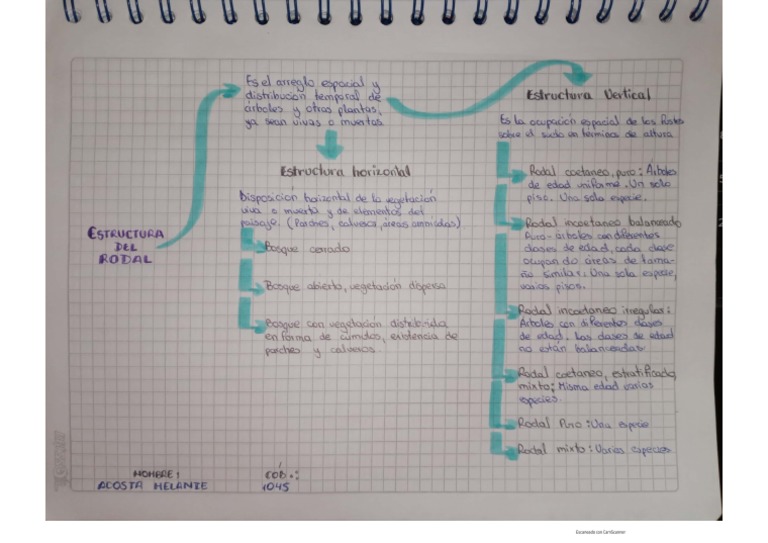 ESTRUCTURA
DEL
RODAL
Es el arreglo espacial y
distribución temporal de
árboles y otras plantas,
ya sean vivas o muertas
Estructura horizontal
Disposición horizontal de la vegetación
viva o muerta y de elementos del
paisaje. (Parches, calveros, áreas
Bosque cerrado
Bosque abierto, vegetación dispersa
Bosque con vegetación distribuida
en forma de cúmulos, existencia de
parches y calveros.
Estructura Vertical
Es la ocupación espacial de los fustes
sobre el suelo en términos de altura
Rodal coetaneo, puro: Árboles
de edad uniforme. Un solo
piso. Una sola especie.
Rodal incoetaneo balanceado
Puro - árboles con diferentes
clases de edad, cada clase
ocupando áreas de tama-
ño similar. Una sola especie,
varios pisos.
Rodal incoetaneo irregular:
Árboles con diferentes clases
de edad. Las clases de edad
no están balanceadas.
Rodal coetaneo, estratificado,
mixto: Misma edad varias
especies.
Rodal Puro: Una especie
Rodal mixto: Varias especies
NOMBRE: CÓD.:
ACOSTA MELANIE 1045
Escaneado con CamScanner